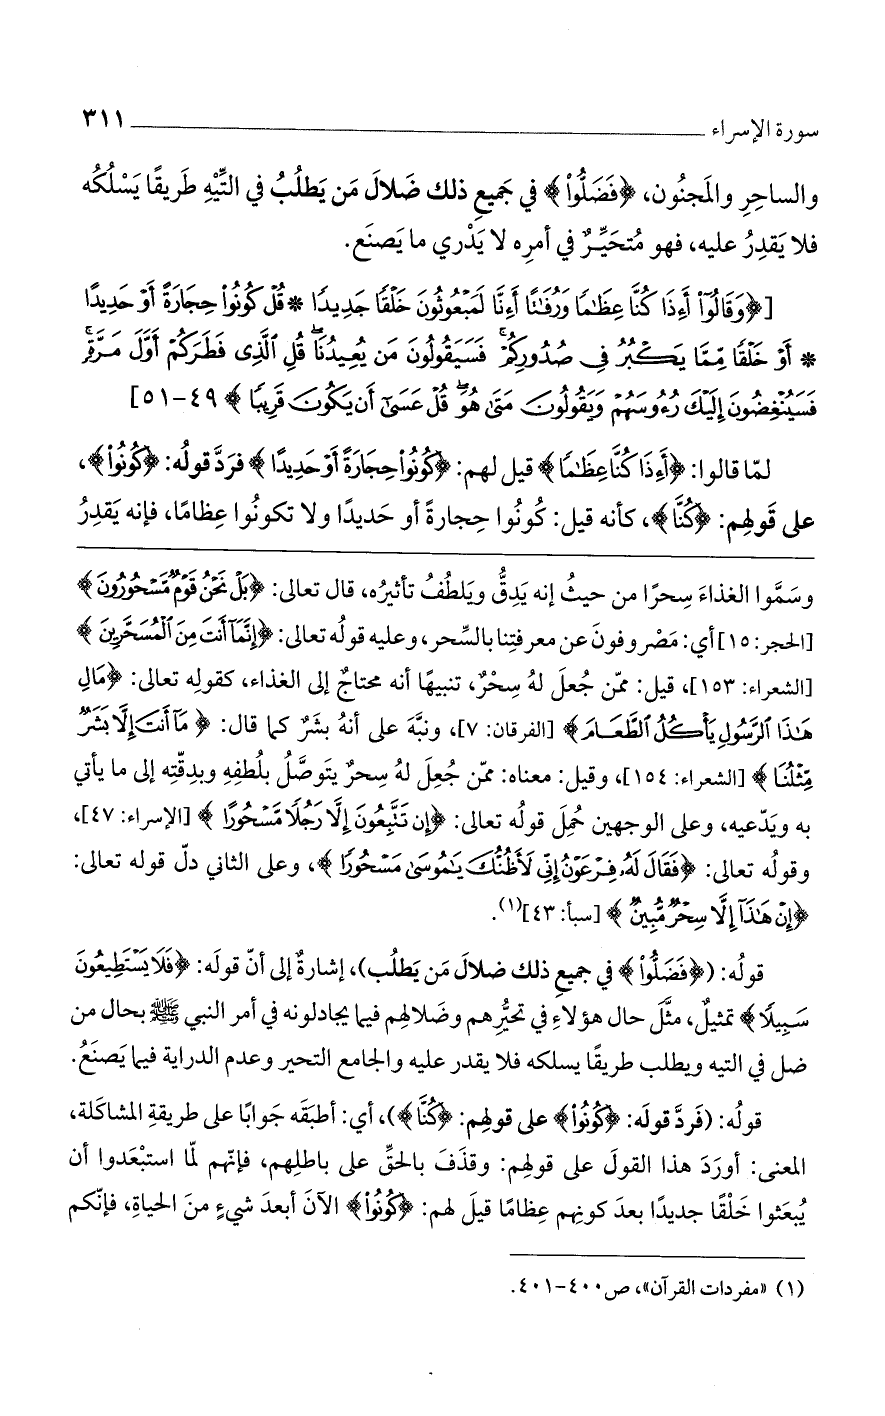 سورة الإسراء ٣١١
والساحِرِ والمَجنُون، ﴿فَضَلُّوا۟﴾ في جَميعِ ذلك ضَلالَ مَن يَطلُبُ في التِّيْهِ طَريقًا يَسْلُكُه
فلا يَقدِرُ عليه، فهو مُتحَيِّرٌ في أمرِه لا يَدْري ما يَصنَع.
[﴿وَقَالُوٓا۟ أَءِذَا كُنَّا عِظَٰمًا وَرُفَٰتًا أَءِنَّا لَمَبْعُوثُونَ خَلْقًا جَدِيدًا * قُلْ كُونُوا۟ حِجَارَةً أَوْ حَدِيدًا
* أَوْ خَلْقًا مِّمَّا يَكْبُرُ فِى صُدُورِكُمْ ۚ فَسَيَقُولُونَ مَن يُعِيدُنَا ۖ قُلِ ٱلَّذِى فَطَرَكُمْ أَوَّلَ مَرَّةٍ ۚ
فَسَيُنْغِضُونَ إِلَيْكَ رُءُوسَهُمْ وَيَقُولُونَ مَتَىٰ هُوَ ۖ قُلْ عَسَىٰٓ أَن يَكُونَ قَرِيبًا﴾ ٤٩-٥١]
لمّا قالوا: ﴿أَءِذَا كُنَّا عِظَٰمًا﴾ قيل لهم: ﴿كُونُوا۟ حِجَارَةً أَوْ حَدِيدًا﴾ فرَدَّ قولُه: ﴿كُونُوا۟﴾،
على قَولِهم: ﴿كُنَّا﴾، كأنه قيل: كُونُوا حِجارةً أو حَديدًا ولا تكونُوا عِظامًا، فإنه يَقدِرُ
وسَمَّوا الغذاءَ سِحرًا من حيثُ إنه يَدِقُّ ويَلطُفُ تأثيرُه، قال تعالى: ﴿بَلْ نَحْنُ قَوْمٌ مَّسْحُورُونَ﴾
[الحجر: ١٥] أي: مَصْروفونَ عن معرفتِنا بالسِّحر، وعليه قولُه تعالى: ﴿إِنَّمَآ أَنتَ مِنَ ٱلْمُسَحَّرِينَ﴾
[الشعراء: ١٥٣]، قيل: ممّن جُعلَ لهُ سِحْرٌ، تنبيهًا أنه محتاجٌ إلى الغذاء، كقولِه تعالى: ﴿مَالِ
هَٰذَا ٱلرَّسُولِ يَأْكُلُ ٱلطَّعَامَ﴾ [الفرقان: ٧]، ونبَّهَ على أنهُ بشَرٌ كما قال: ﴿مَآ أَنتَ إِلَّا بَشَرٌ
مِّثْلُنَا﴾ [الشعراء: ١٥٤]، وقيل: معناه: ممّن جُعِلَ لهُ سِحرٌ يتَوصَّلُ بلُطفِهِ وبدِقّتِه إلى ما يأتي
به ويَدّعيه، وعلى الوجهين حُمِلَ قولُه تعالى: ﴿إِن تَتَّبِعُونَ إِلَّا رَجُلًا مَّسْحُورًا﴾ [الإسراء: ٤٧]،
وقولُه تعالى: ﴿فَقَالَ لَهُۥ فِرْعَوْنُ إِنِّى لَأَظُنُّكَ يَٰمُوسَىٰ مَسْحُورًا﴾، وعلى الثاني دلّ قوله تعالى:
﴿إِنْ هَٰذَآ إِلَّا سِحْرٌ مُّبِينٌ﴾ [سبأ: ٤٣](١).
قولُه: (﴿فَضَلُّوا۟﴾ في جميعِ ذلك ضلالَ مَن يَطلُب)، إشارةٌ إلى أنّ قولَه: ﴿فَلَا يَسْتَطِيعُونَ
سَبِيلًا﴾ تمثيلٌ، مثَّلَ حال هؤلاءِ في تحيُّرِهم وضَلالِهم فيما يجادلونه في أمر النبي ﷺ بحال من
ضل في التيه ويطلب طريقًا يسلكه فلا يقدر عليه والجامع التحير وعدم الدراية فيما يَصنَعُ.
قولُه: (فَردَّ قولَه: ﴿كُونُوا۟﴾ على قولهم: ﴿كُنَّا﴾)، أي: أطبَقَه جَوابًا على طريقةِ المشاكَلة،
المعنى: أورَدَ هذا القولَ على قولهم: وقذَفَ بالحقِّ على باطلِهم، فإنّهم لمّا استبْعَدوا أن
يُبعَثوا خَلْقًا جديدًا بعدَ كونِهم عِظامًا قيلَ لهم: ﴿كُونُوا۟﴾ الآنَ أبعدَ شيءٍ منَ الحياةِ، فإنّكم
(١) «مفردات القرآن»، ص٤٠٠-٤٠١.